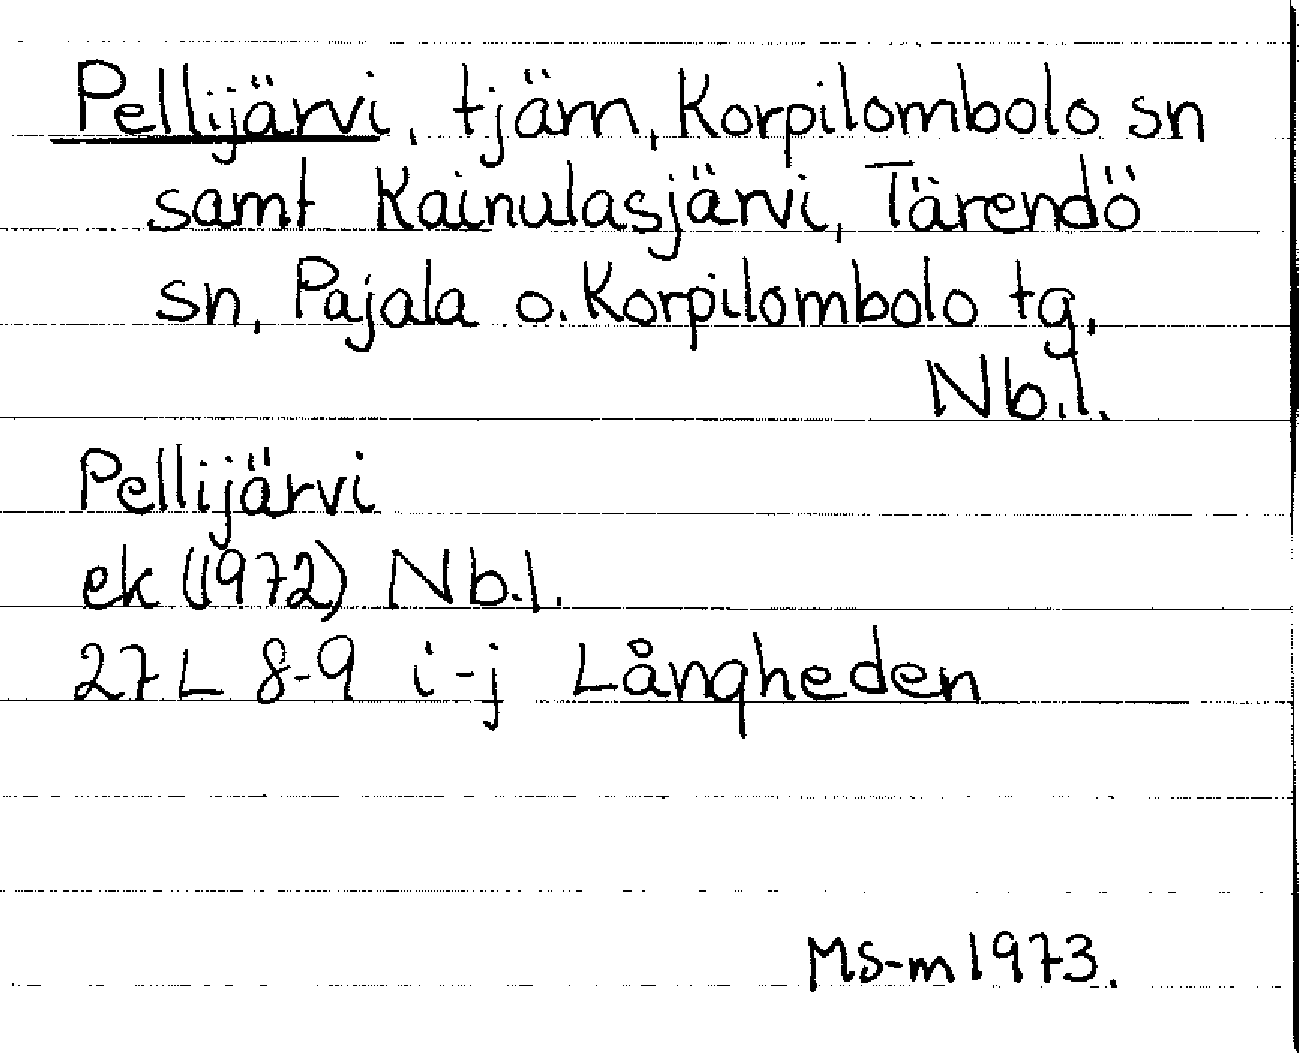 Pellijärvi, tjärn, Korpilombolo sn
samt Kainulasjärvi, Tärendö
sn, Pajala o. Korpilombolo tg,
Nb.l.
Pellijärvi
ek (1972) Nb.l.
27L 8-9 i-j Långheden
MS-m 1973.